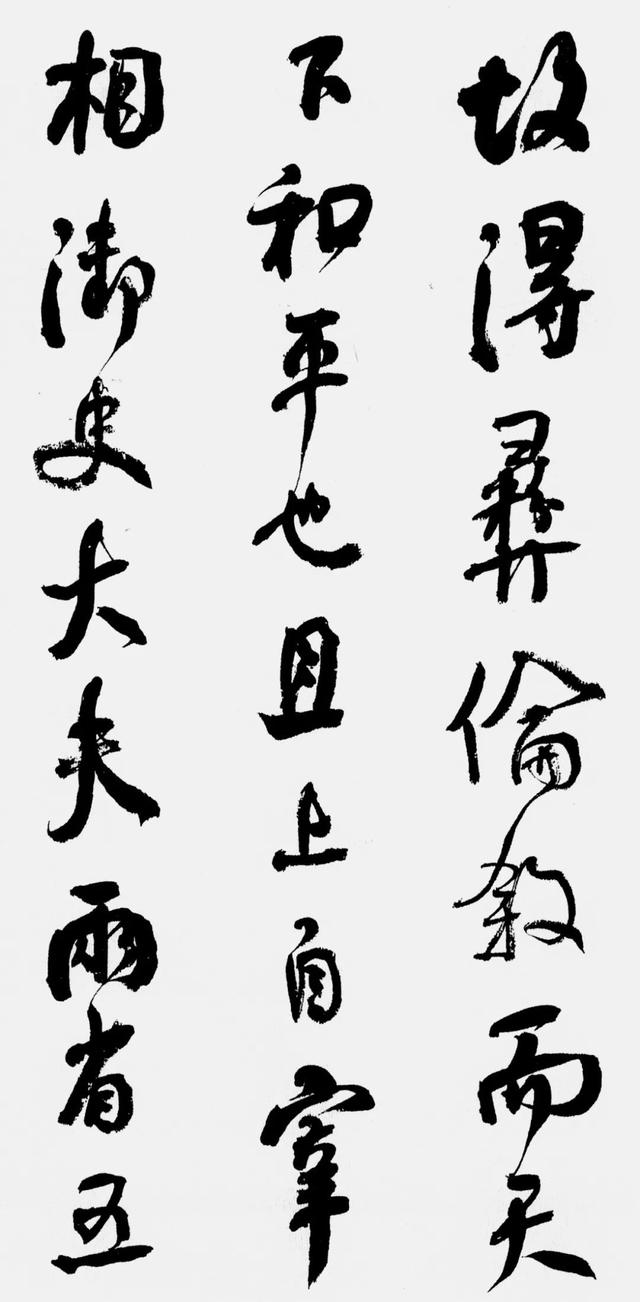 故得彝倫敘而天
下和平也且上自宰
相御史大夫兩省五